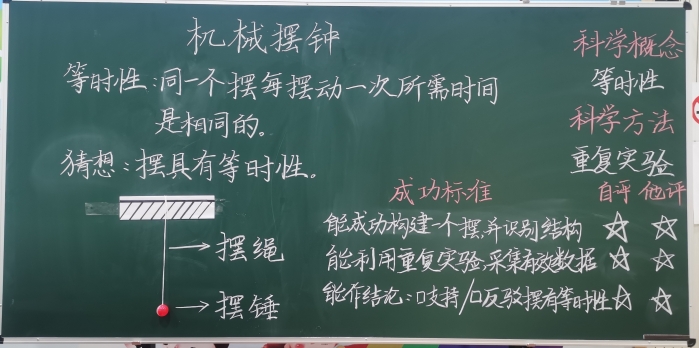 机械摆钟
等时性:同一个摆每摆动一次所需时间
是相同的。
猜想:摆具有等时性。
摆绳
摆锤
科学概念
等时性
科学方法
重复实验
成功标准 自评 他评
能成功构建一个摆,并识别结构 ☆ ☆
能利用重复实验,采集有效数据 ☆ ☆
能作结论:□支持/□反驳摆有等时性 ☆ ☆